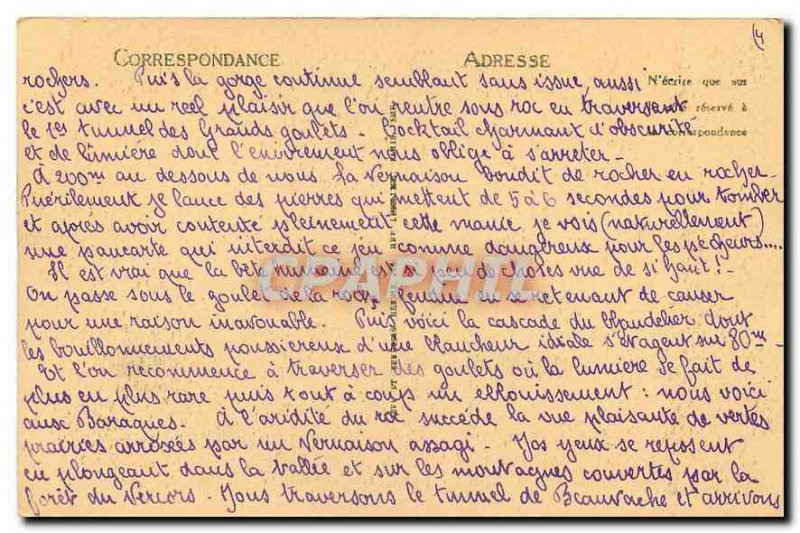 4
CORRESPONDANCE
ADRESSE
rochers. Puis la gorge continue semblant sans issue, aussi
N'écrire que sur
c'est avec un reel plaisir que l'on rentre sous roc en traversant
réservé à
le 1er tunnel des Grands goulets - Cocktail charmant d'obscurité
correspondance
et de lumière dont l'enivrement nous oblige à s'arreter -
A 200m au dessous de nous la Vernaison bondit de rocher en rocher -
Puérilement je lance des pierres qui mettent de 5 à 6 secondes pour tomber
et après avoir contenté pleinement cette manie je vois (naturellement)
une pancarte qui interdit ce jeu comme dangereux pour les pécheurs....
Il est vrai que la bête humaine est si peu de choses vue de si haut! -
On passe sous le goulet de la roche fendue en se retenant de causer
pour une raison inavouable. Puis voici la cascade du Chandelier dont
les bouillonnements poussiereux d'une blancheur idéale s'étagent sur 80m -
Et l'on recommence à traverser des goulets où la lumière se fait de
plus en plus rare puis tout à coup un éblouissement : nous voici
aux Baraques. A l'aridité du roc succède la vue plaisante de vertes
prairies arrosées par un Vernaison assagi - Nos yeux se reposent
en plongeant dans la vallée et sur les montagnes couvertes par la
forêt du Vercors. Nous traversons le tunnel de Beauvache et arrivons
CPAPHIL